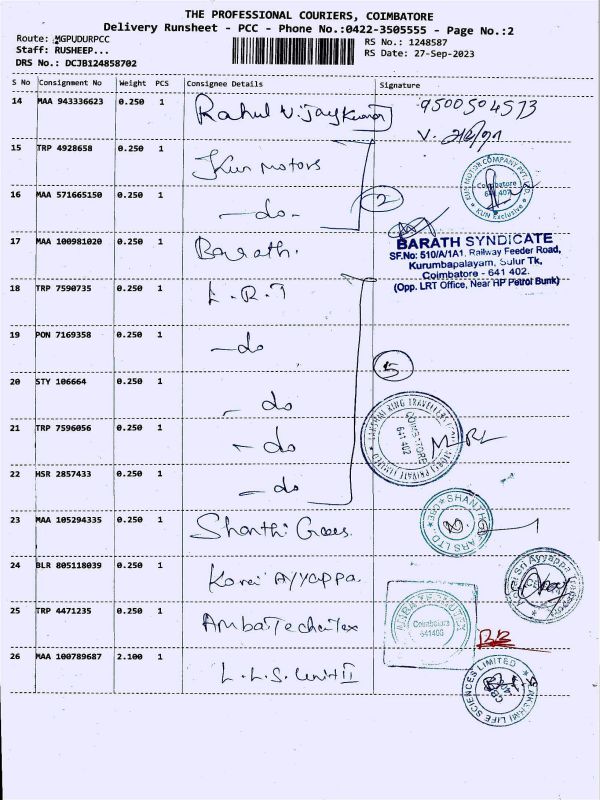 THE PROFESSIONAL COURIERS, COIMBATORE
Delivery Runsheet - PCC - Phone No.:0422-3505555 - Page No.:2
Route: MGPUDURPCC
Staff: RUSHEEP...
DRS No.: DCJB124858702
RS No.: 1248587
RS Date: 27-Sep-2023
S No Consignment No Weight PCS Consignee Details Signature
14 MAA 943336623 0.250 1 Rahul Vijaykumar 9500504573
15 TRP 4928658 0.250 1 Kun Motors
KUN MOTOR COMPANY PVT. LTD.
Coimbatore
641 402
KUN Exclusive
16 MAA 571665150 0.250 1 - do - 2
17 MAA 100981020 0.250 1 Barath.
BARATH SYNDICATE
SF.No: 510/A/1A1, Railway Feeder Road,
Kurumbapalayam, Sulur Tk,
Coimbatore - 641 402.
(Opp. LRT Office, Near HP Petrol Bunk)
18 TRP 7590735 0.250 1 L.R.T
19 PON 7169358 0.250 1 - do 5
20 STY 106664 0.250 1 - do
21 TRP 7596056 0.250 1 - do
COIMBATORE
641 402
22 HSR 2857433 0.250 1 - do
23 MAA 105294335 0.250 1 Shanthi Gears
24 BLR 805118039 0.250 1 Korai Ayyappa
25 TRP 4471235 0.250 1 Amba Techtex
Coimbatore
26 MAA 100789687 2.100 1 L.L.S. Unit II
LAKSHMI LIFE SCIENCES LIMITED